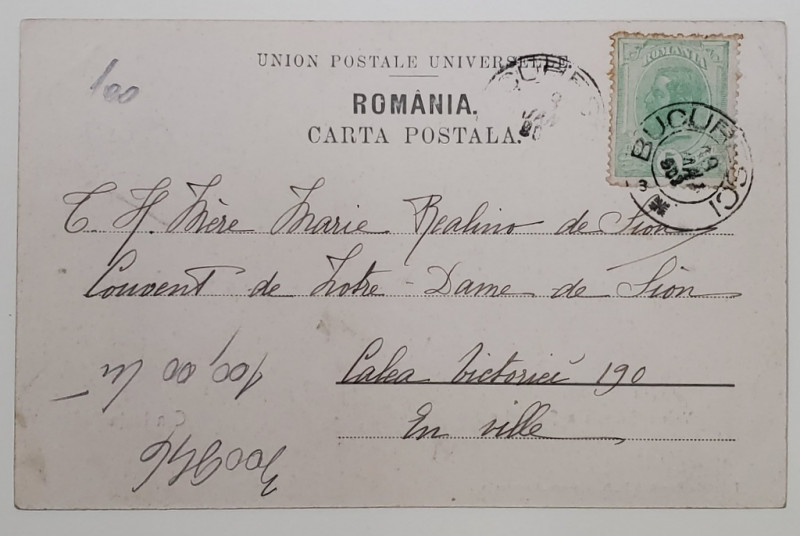 100
UNION POSTALE UNIVERSELLE
ROMÂNIA.
CARTA POSTALA.
ROMANIA
5
BUCURESCI
19 MAI 903
3
T. H. Mère Marie Realino de Sion
Couvent de Notre-Dame de Sion
Calea Victoriei 190
En ville
100,00